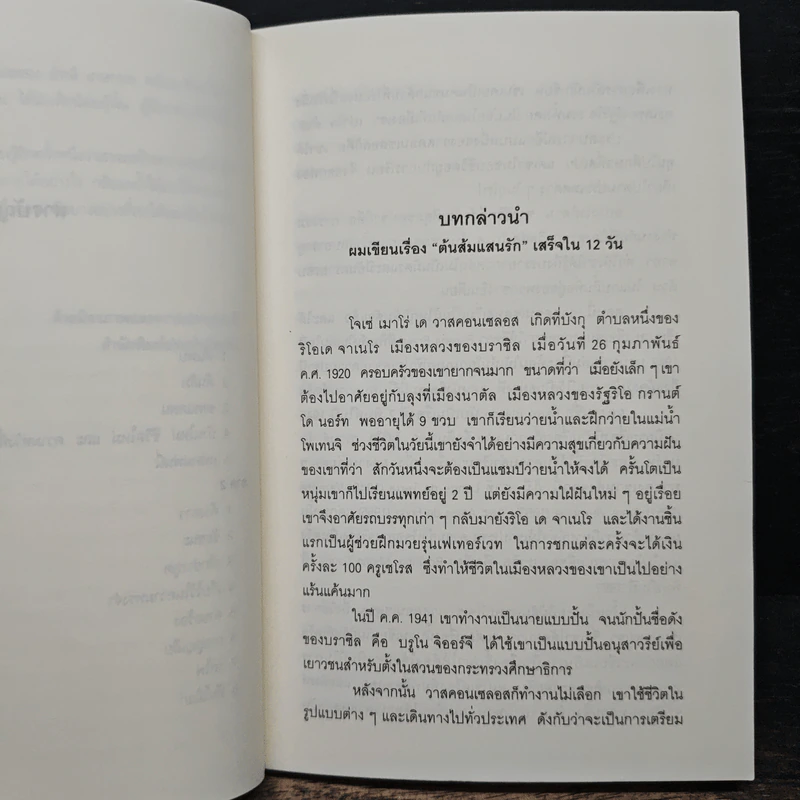 บทกล่าวนำ
ผมเขียนเรื่อง “ต้นส้มแสนรัก” เสร็จใน 12 วัน
โจเซ่ เมาโร่ เด วาสคอนเซลอส เกิดที่บังกุ ตำบลหนึ่งของ
ริโอเด จาเนโร เมืองหลวงของบราซิล เมื่อวันที่ 26 กุมภาพันธ์
ค.ศ. 1920 ครอบครัวของเขายากจนมาก ขนาดที่ว่า เมื่อยังเล็ก ๆ เขา
ต้องไปอาศัยอยู่กับลุงที่เมืองนาตัล เมืองหลวงของรัฐริโอ กรานด์
โด นอร์ท พออายุได้ 9 ขวบ เขาก็เรียนว่ายน้ำและฝึกว่ายในแม่น้ำ
โพเทนจิ ช่วงชีวิตในวัยนี้เขายังจำได้อย่างมีความสุขเกี่ยวกับความฝัน
ของเขาที่ว่า สักวันหนึ่งจะต้องเป็นแชมป์ว่ายน้ำให้จงได้ ครั้นโตเป็น
หนุ่มเขาก็ไปเรียนแพทย์อยู่ 2 ปี แต่ยังมีความใฝ่ฝันใหม่ ๆ อยู่เรื่อย
เขาจึงอาศัยรถบรรทุกเก่า ๆ กลับมายังริโอ เด จาเนโร และได้งานชิ้น
แรกเป็นผู้ช่วยฝึกมวยรุ่นเฟเทอร์เวท ในการชกแต่ละครั้งจะได้เงิน
ครั้งละ 100 ครูเซโรส ซึ่งทำให้ชีวิตในเมืองหลวงของเขาเป็นไปอย่าง
แร้นแค้นมาก
ในปี ค.ศ. 1941 เขาทำงานเป็นนายแบบปั้น จนนักปั้นชื่อดัง
ของบราซิล คือ บรูโน จิออร์จี ได้ใช้เขาเป็นแบบปั้นอนุสาวรีย์เพื่อ
เยาวชนสำหรับตั้งในสวนของกระทรวงศึกษาธิการ
หลังจากนั้น วาสคอนเซลอสก็ทำงานไม่เลือก เขาใช้ชีวิตใน
รูปแบบต่าง ๆ และเดินทางไปทั่วประเทศ ดังกับว่าจะเป็นการเตรียม